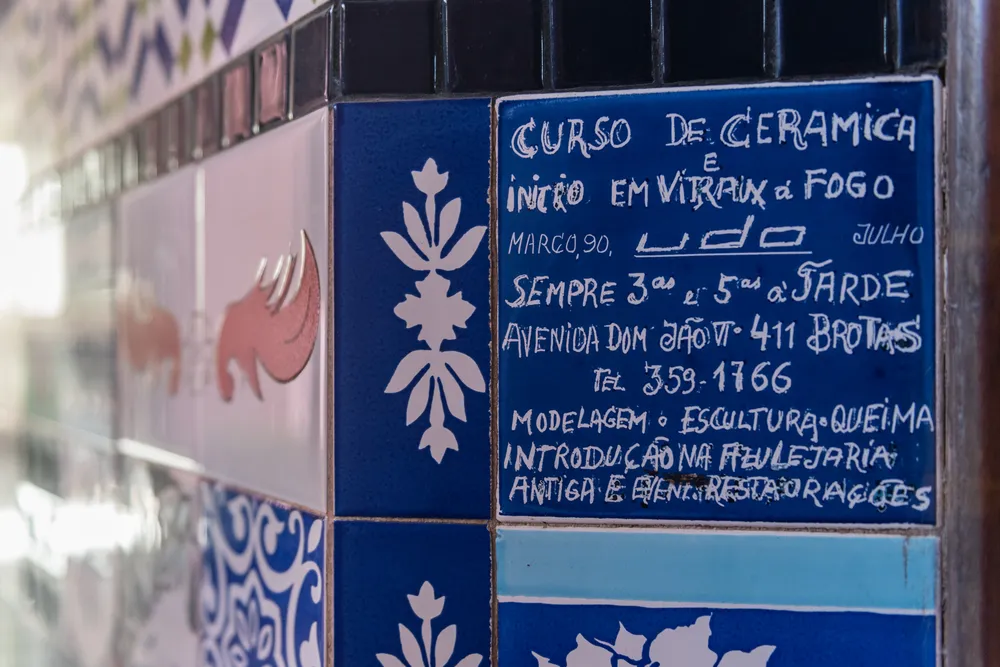 CURSO DE CERAMICA
E
INICIO EM VITRAUX a FOGO
MARCO, 90, udo JULHO
SEMPRE 3as e 5as a TARDE
AVENIDA DOM JÃO VI - 411 BROTAS
TEL 359-1766
MODELAGEM • ESCULTURA • QUEIMA
INTRODUÇÃO NA AZULEJARIA
ANTIGA E EVENT. RESTAURAÇÕES